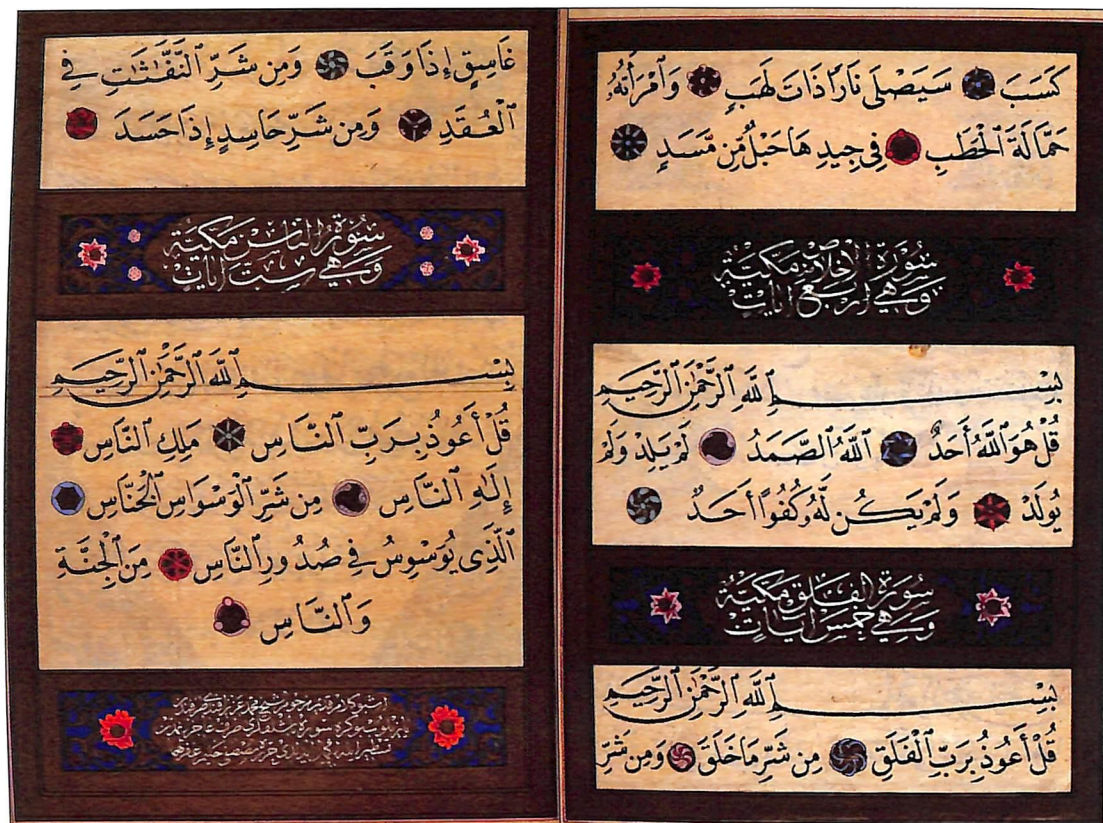 كَسَبَ سَيَصْلَىٰ نَارًا ذَاتَ لَهَبٍ وَٱمْرَأَتُهُۥ
حَمَّالَةَ ٱلْحَطَبِ فِى جِيدِهَا حَبْلٌ مِّن مَّسَدٍۭ
سُورَةُ الإِخْلَاصِ مَكِّيَّةٌ
وَهِيَ أَرْبَعُ آيَاتٍ
بِسْمِ ٱللَّهِ ٱلرَّحْمَٰنِ ٱلرَّحِيمِ
قُلْ هُوَ ٱللَّهُ أَحَدٌ ٱللَّهُ ٱلصَّمَدُ لَمْ يَلِدْ وَلَمْ
يُولَدْ وَلَمْ يَكُن لَّهُۥ كُفُوًا أَحَدٌۢ
سُورَةُ الفَلَقِ مَكِّيَّةٌ
وَهِيَ خَمْسُ آيَاتٍ
بِسْمِ ٱللَّهِ ٱلرَّحْمَٰنِ ٱلرَّحِيمِ
قُلْ أَعُوذُ بِرَبِّ ٱلْفَلَقِ مِن شَرِّ مَا خَلَقَ وَمِن شَرِّ
غَاسِقٍ إِذَا وَقَبَ وَمِن شَرِّ ٱلنَّفَّٰثَٰتِ فِى
ٱلْعُقَدِ وَمِن شَرِّ حَاسِدٍ إِذَا حَسَدَ
سُورَةُ النَّاسِ مَكِّيَّةٌ
وَهِيَ سِتُّ آيَاتٍ
بِسْمِ ٱللَّهِ ٱلرَّحْمَٰنِ ٱلرَّحِيمِ
قُلْ أَعُوذُ بِرَبِّ ٱلنَّاسِ مَلِكِ ٱلنَّاسِ
إِلَٰهِ ٱلنَّاسِ مِن شَرِّ ٱلْوَسْوَاسِ ٱلْخَنَّاسِ
ٱلَّذِى يُوَسْوِسُ فِى صُدُورِ ٱلنَّاسِ مِنَ ٱلْجِنَّةِ
وَٱلنَّاسِ